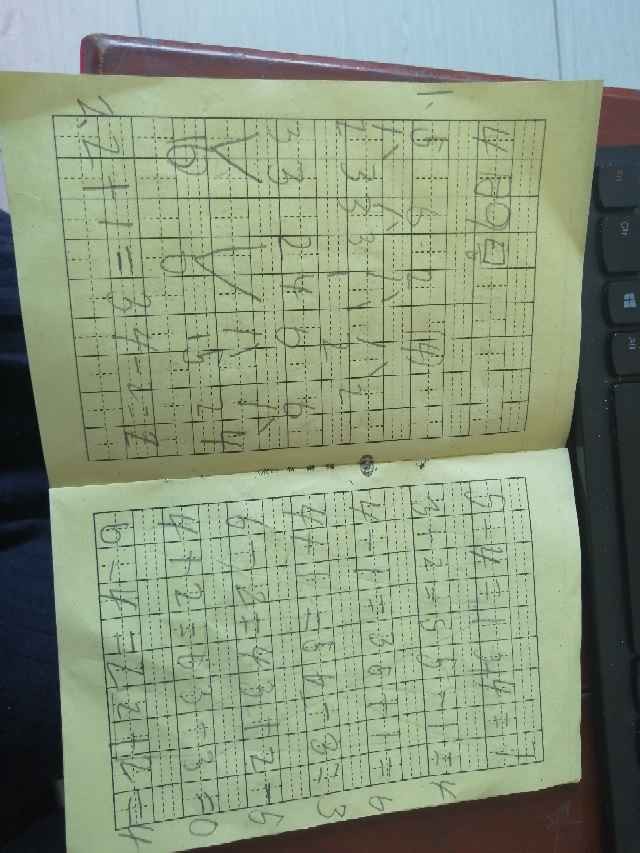 4月9日
1、
5 6 2 4
2 3 3 3 1 1 2 2
3 3 2 4
6 6 5 2 4
2、2+1=3 4-2=2
5-4=1
3+2=5 5-1=4
4-1=3 5+1=6
4+1=5
6-2=4 3+2=5
4+2=6 3-3=0
6-4=2 2+2=4